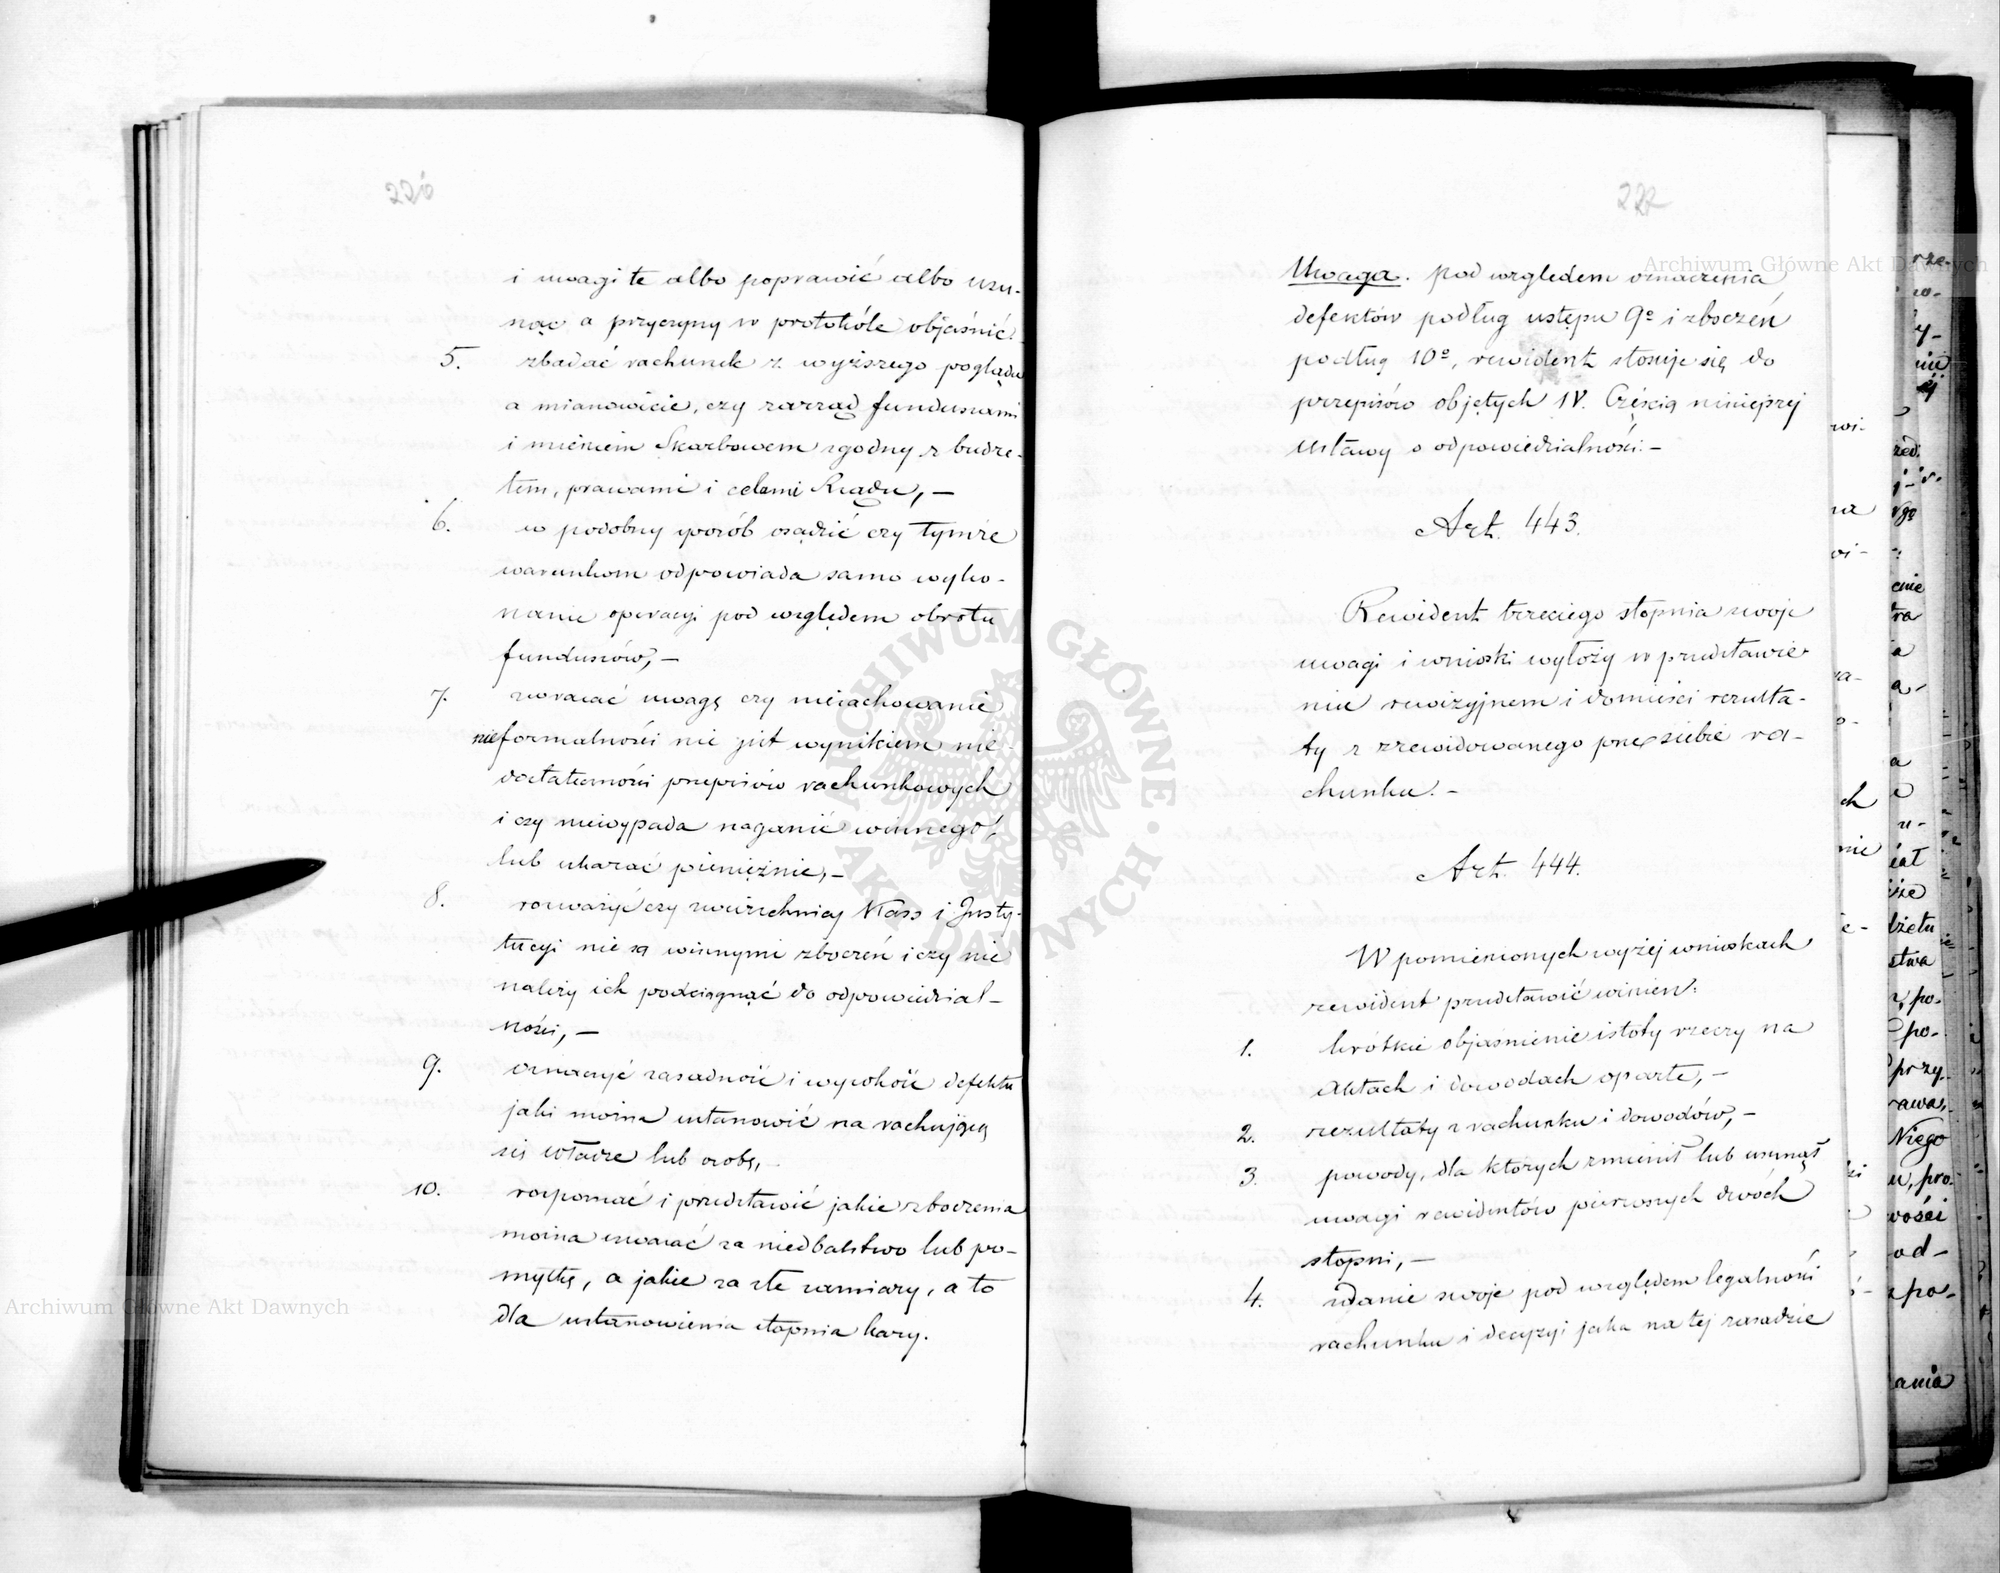 226
i uwagi te albo poprawić albo usu-
nąć a przyczyny w protokóle objaśnić.
5. zbadać rachunek z wyższego poglądu
a mianowicie, czy zarząd funduszami
i mieniem Skarbowem zgodny z budże-
tem, prawami i celami Rządu, —
6. w podobny sposób osądzić czy tymże
warunkom odpowiada samo wyko-
nanie operacyi pod względem obrotu
funduszów, —
7. zwracać uwagę czy niezachowanie
formalności nie jest wynikiem nie-
dostateczności przepisów rachunkowych
i czy niewypada naganić winnego,
lub ukarać pieniężnie, —
8. rozważyć czy zwierzchnicy Kass i Insty-
tucyi nie są winnymi zboczeń i czy nie
należy ich podciągnąć do odpowiedzial-
ności, —
9. oznaczyć zasadność i wysokość defektu
jaki można ustanowić na rachującą
się władze lub osobę,
10. rozpoznać i przedstawić jakie zboczenia
można uważać za niedbalstwo lub po-
myłkę, a jakie za złe zamiary, a to
dla ustanowienia stopnia kary.
222
Uwaga. pod względem oznaczenia
defektów podług ustępu 9º i zboczeń
podług 10º, rewident stosuje się do
przepisów objętych IV. Częścią niniejszej
Ustawy o odpowiedzialności. —
Art. 443.
Rewident trzeciego stopnia swoje
uwagi i wnioski wyłoży w przedstawie-
niu rewizyjnem i domieści rezulta-
ty z zrewidowanego przez siebie ra-
chunku. —
Art. 444.
W pomienionych wyżej wnioskach
rewident przedstawić winien:
1. krótkie objaśnienie istoty rzeczy na
aktach i dowodach oparte, —
2. rezultaty z rachunku i dowodów, —
3. powody, dla których zmienił lub usunął
uwagi rewidentów pierwszych dwóch
stopni, —
4. zdanie swoje pod względem legalności
rachunku i decyzyi jaka na tej zasadzie
Archiwum Główne Akt Dawnych
Archiwum Główne Akt Dawnych
ARCHIWUM GŁÓWNE · AKT DAWNYCH ·